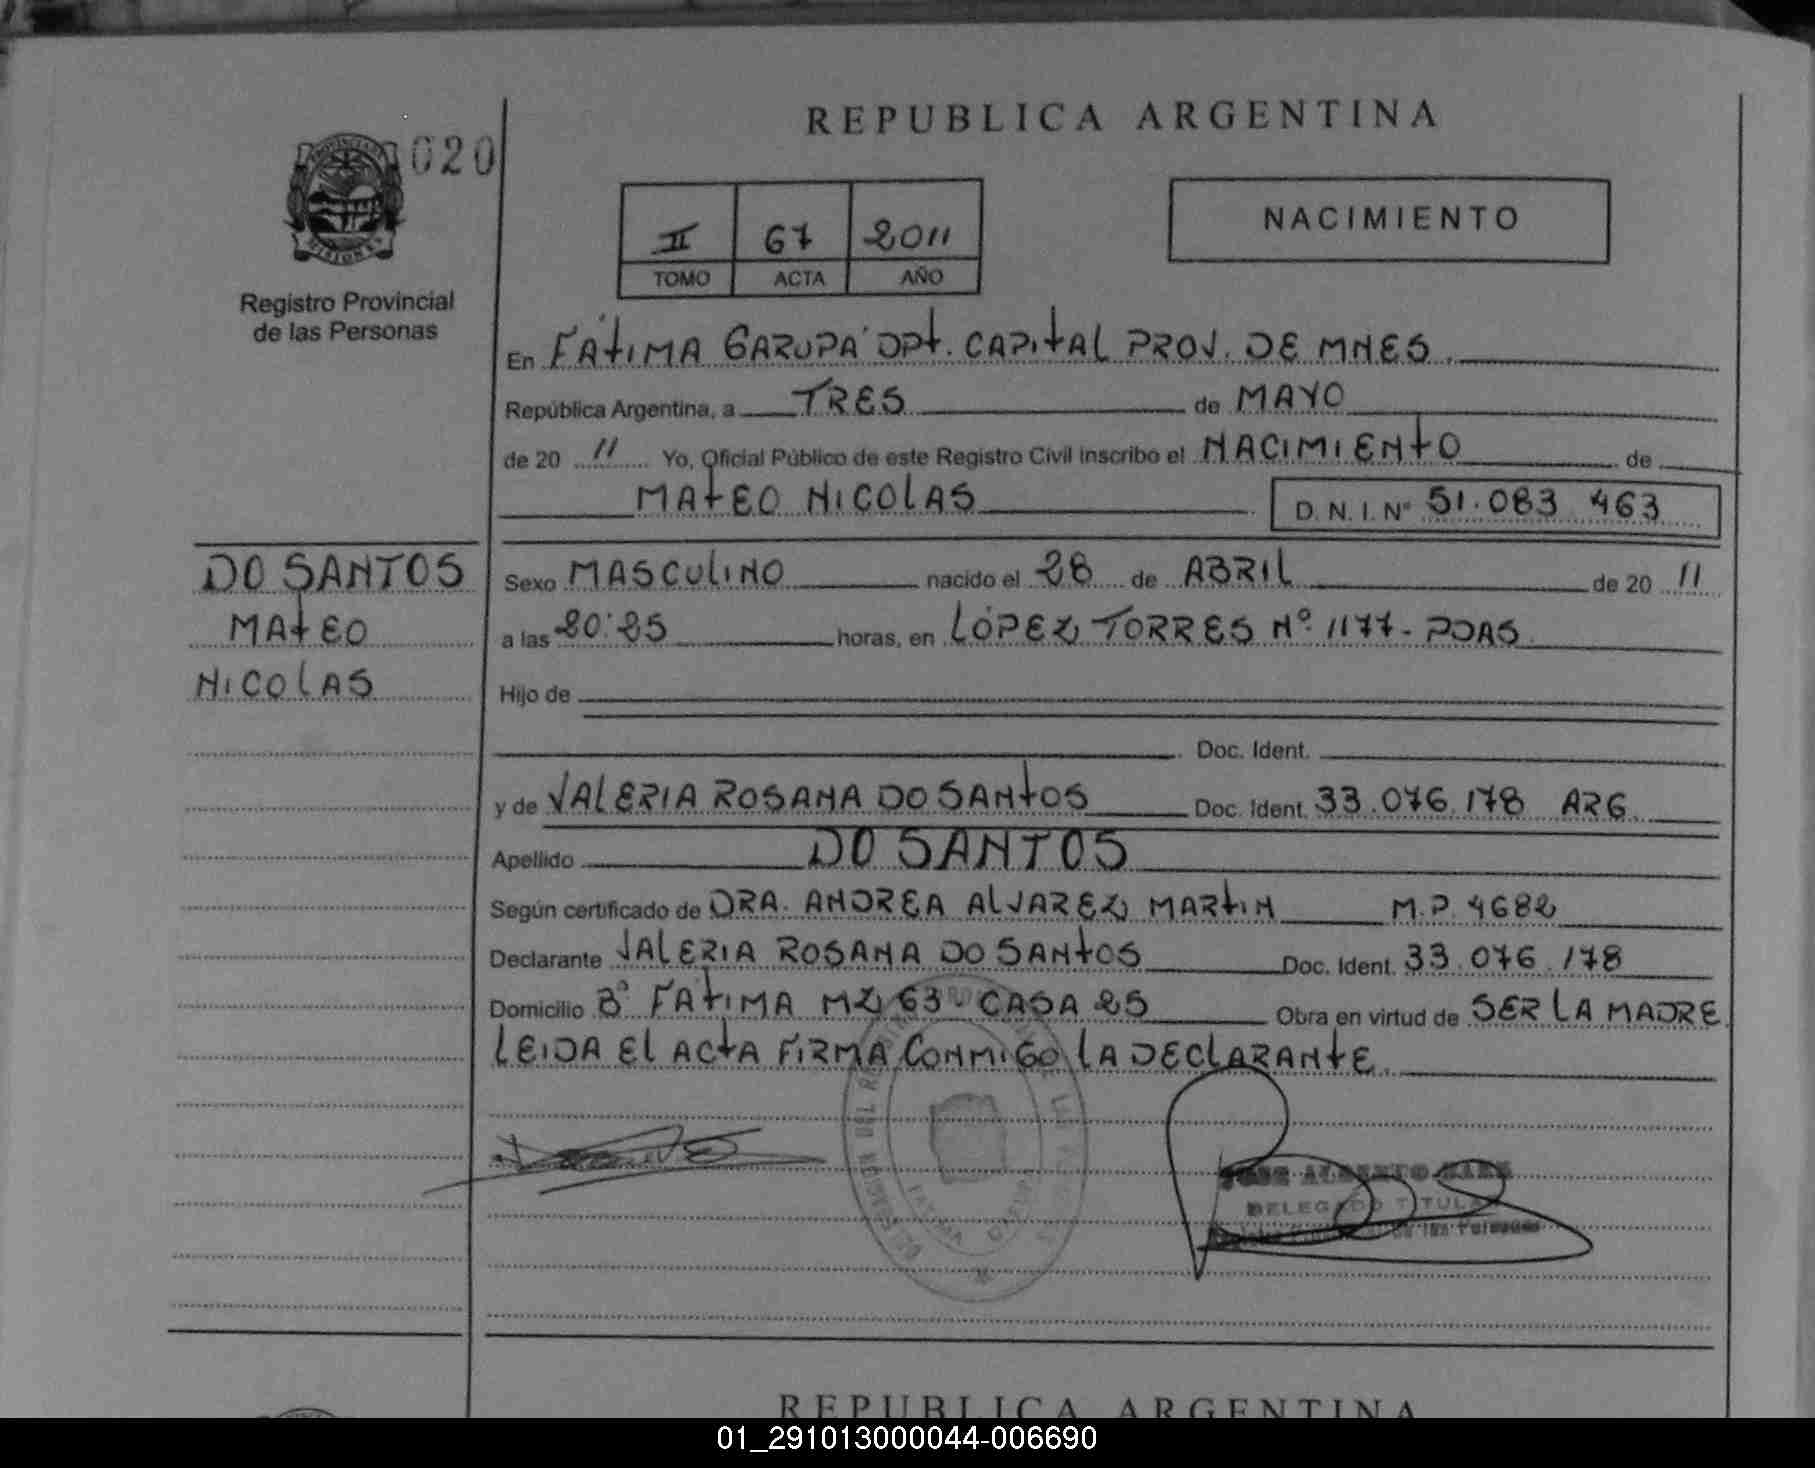 REPUBLICA ARGENTINA
020
PROVINCIA DE MISIONES
Registro Provincial
de las Personas
II 67 2011
TOMO ACTA AÑO
NACIMIENTO
En FÁTIMA GARUPA DPT. CAPITAL PROV. DE MNES.
República Argentina, a TRES de MAYO
de 20 11 Yo, Oficial Público de este Registro Civil inscribo el NACIMIENTO de
MATEO NICOLAS D. N. I. Nº 51.083 463
DO SANTOS
MATEO
NICOLAS
Sexo MASCULINO nacido el 28 de ABRIL de 20 11
a las 20:25 horas, en LÓPEZ TORRES Nº 1177 - PDAS.
Hijo de
Doc. Ident.
y de VALERIA ROSANA DO SANTOS Doc. Ident. 33.076.178 ARG.
Apellido DO SANTOS
Según certificado de DRA. ANDREA ALVAREZ MARTIN M.P. 4682
Declarante VALERIA ROSANA DO SANTOS Doc. Ident. 33.076.178
Domicilio Bº FATIMA MZ 63 - CASA 25 Obra en virtud de SER LA MADRE
LEIDA El ACTA FIRMA CONMIGO LA DECLARANTE.
JOSE ALBERTO
DELEGADO TITULAR
de las Personas
REPUBLICA ARGENTINA
01_291013000044-006690